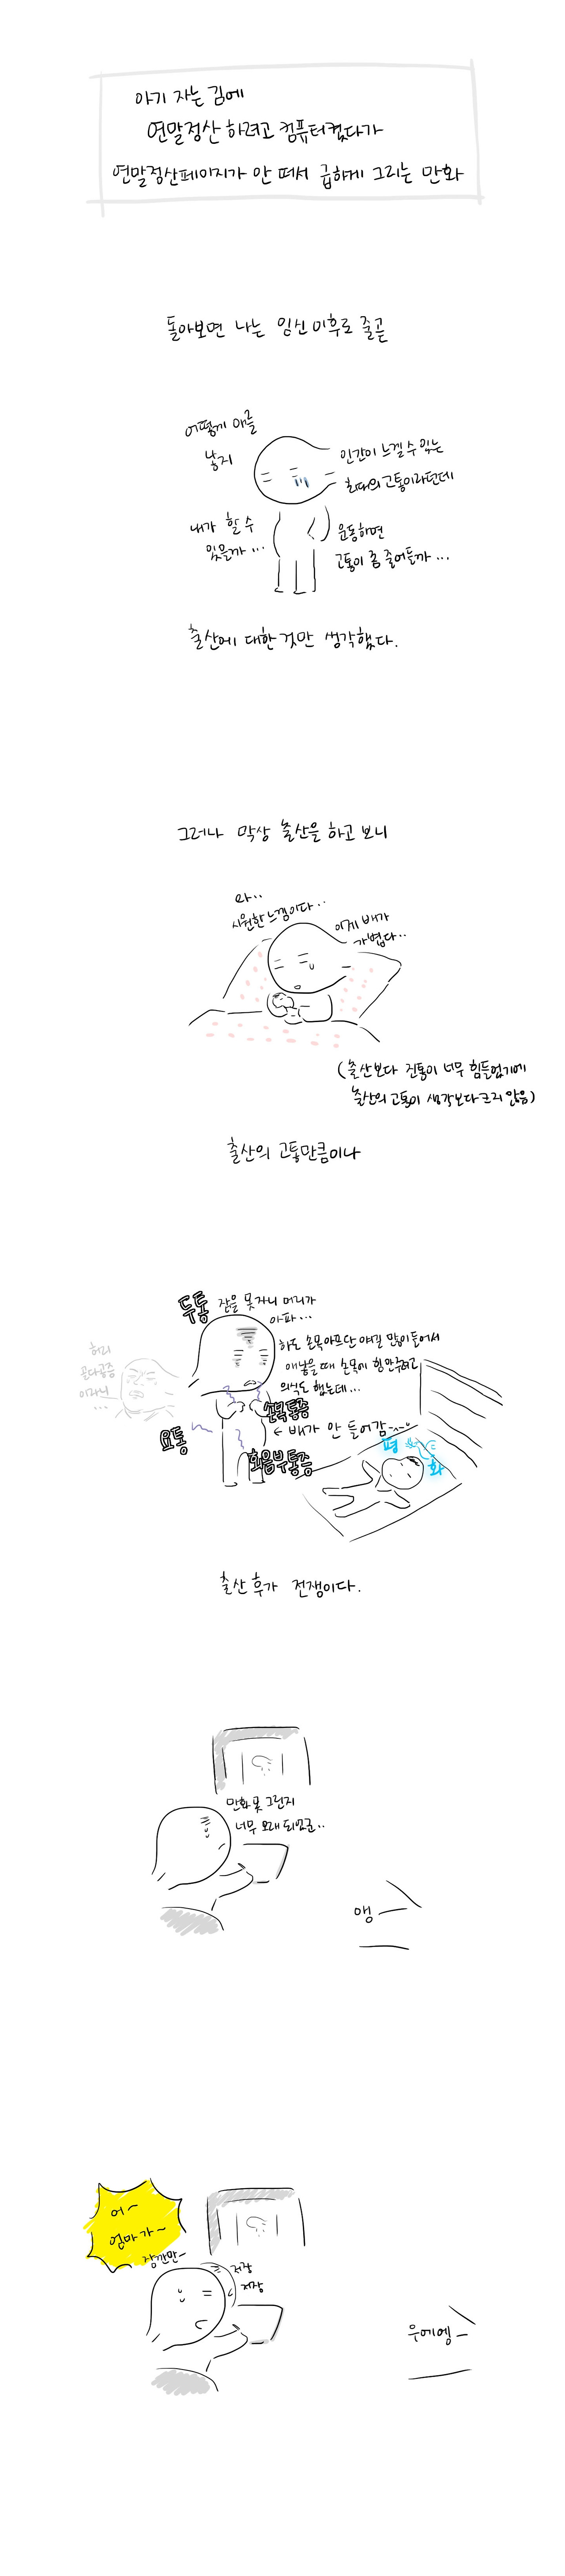 아기 자는 김에
연말정산 하려고 컴퓨터켰다가
연말정산페이지가 안 떠서 급하게 그리는 만화
돌아보면 나는 임신 이후로 줄곧
어떻게 애를
낳지
인간이 느낄 수 있는
최대의 고통이라던데
내가 할 수
있을까...
운동하면
고통이 좀 줄어들까...
출산에 대한 것만 생각했다.
그러나 막상 출산을 하고 보니
와..
시원한 느낌이다..
이제 배가
가볍다..
(출산보다 진통이 너무 힘들었기에
출산의 고통이 생각보다 크지 않음)
출산의 고통만큼이나
두통
잠을 못 자니 머리가
아파...
허리
골다공증
이라니
...
하도 손목아프단 얘길 많이 들어서
애낳을 때 손목에 힘 안주려고
의식도 했는데...
손목통증
← 배가 안 들어감
요통
회음부통증
평
화
출산 후가 전쟁이다.
만화 못 그린지
너무 오래 되었군..
앵
어~
엄마가~
잠깐만~
저장
저장
우에엥